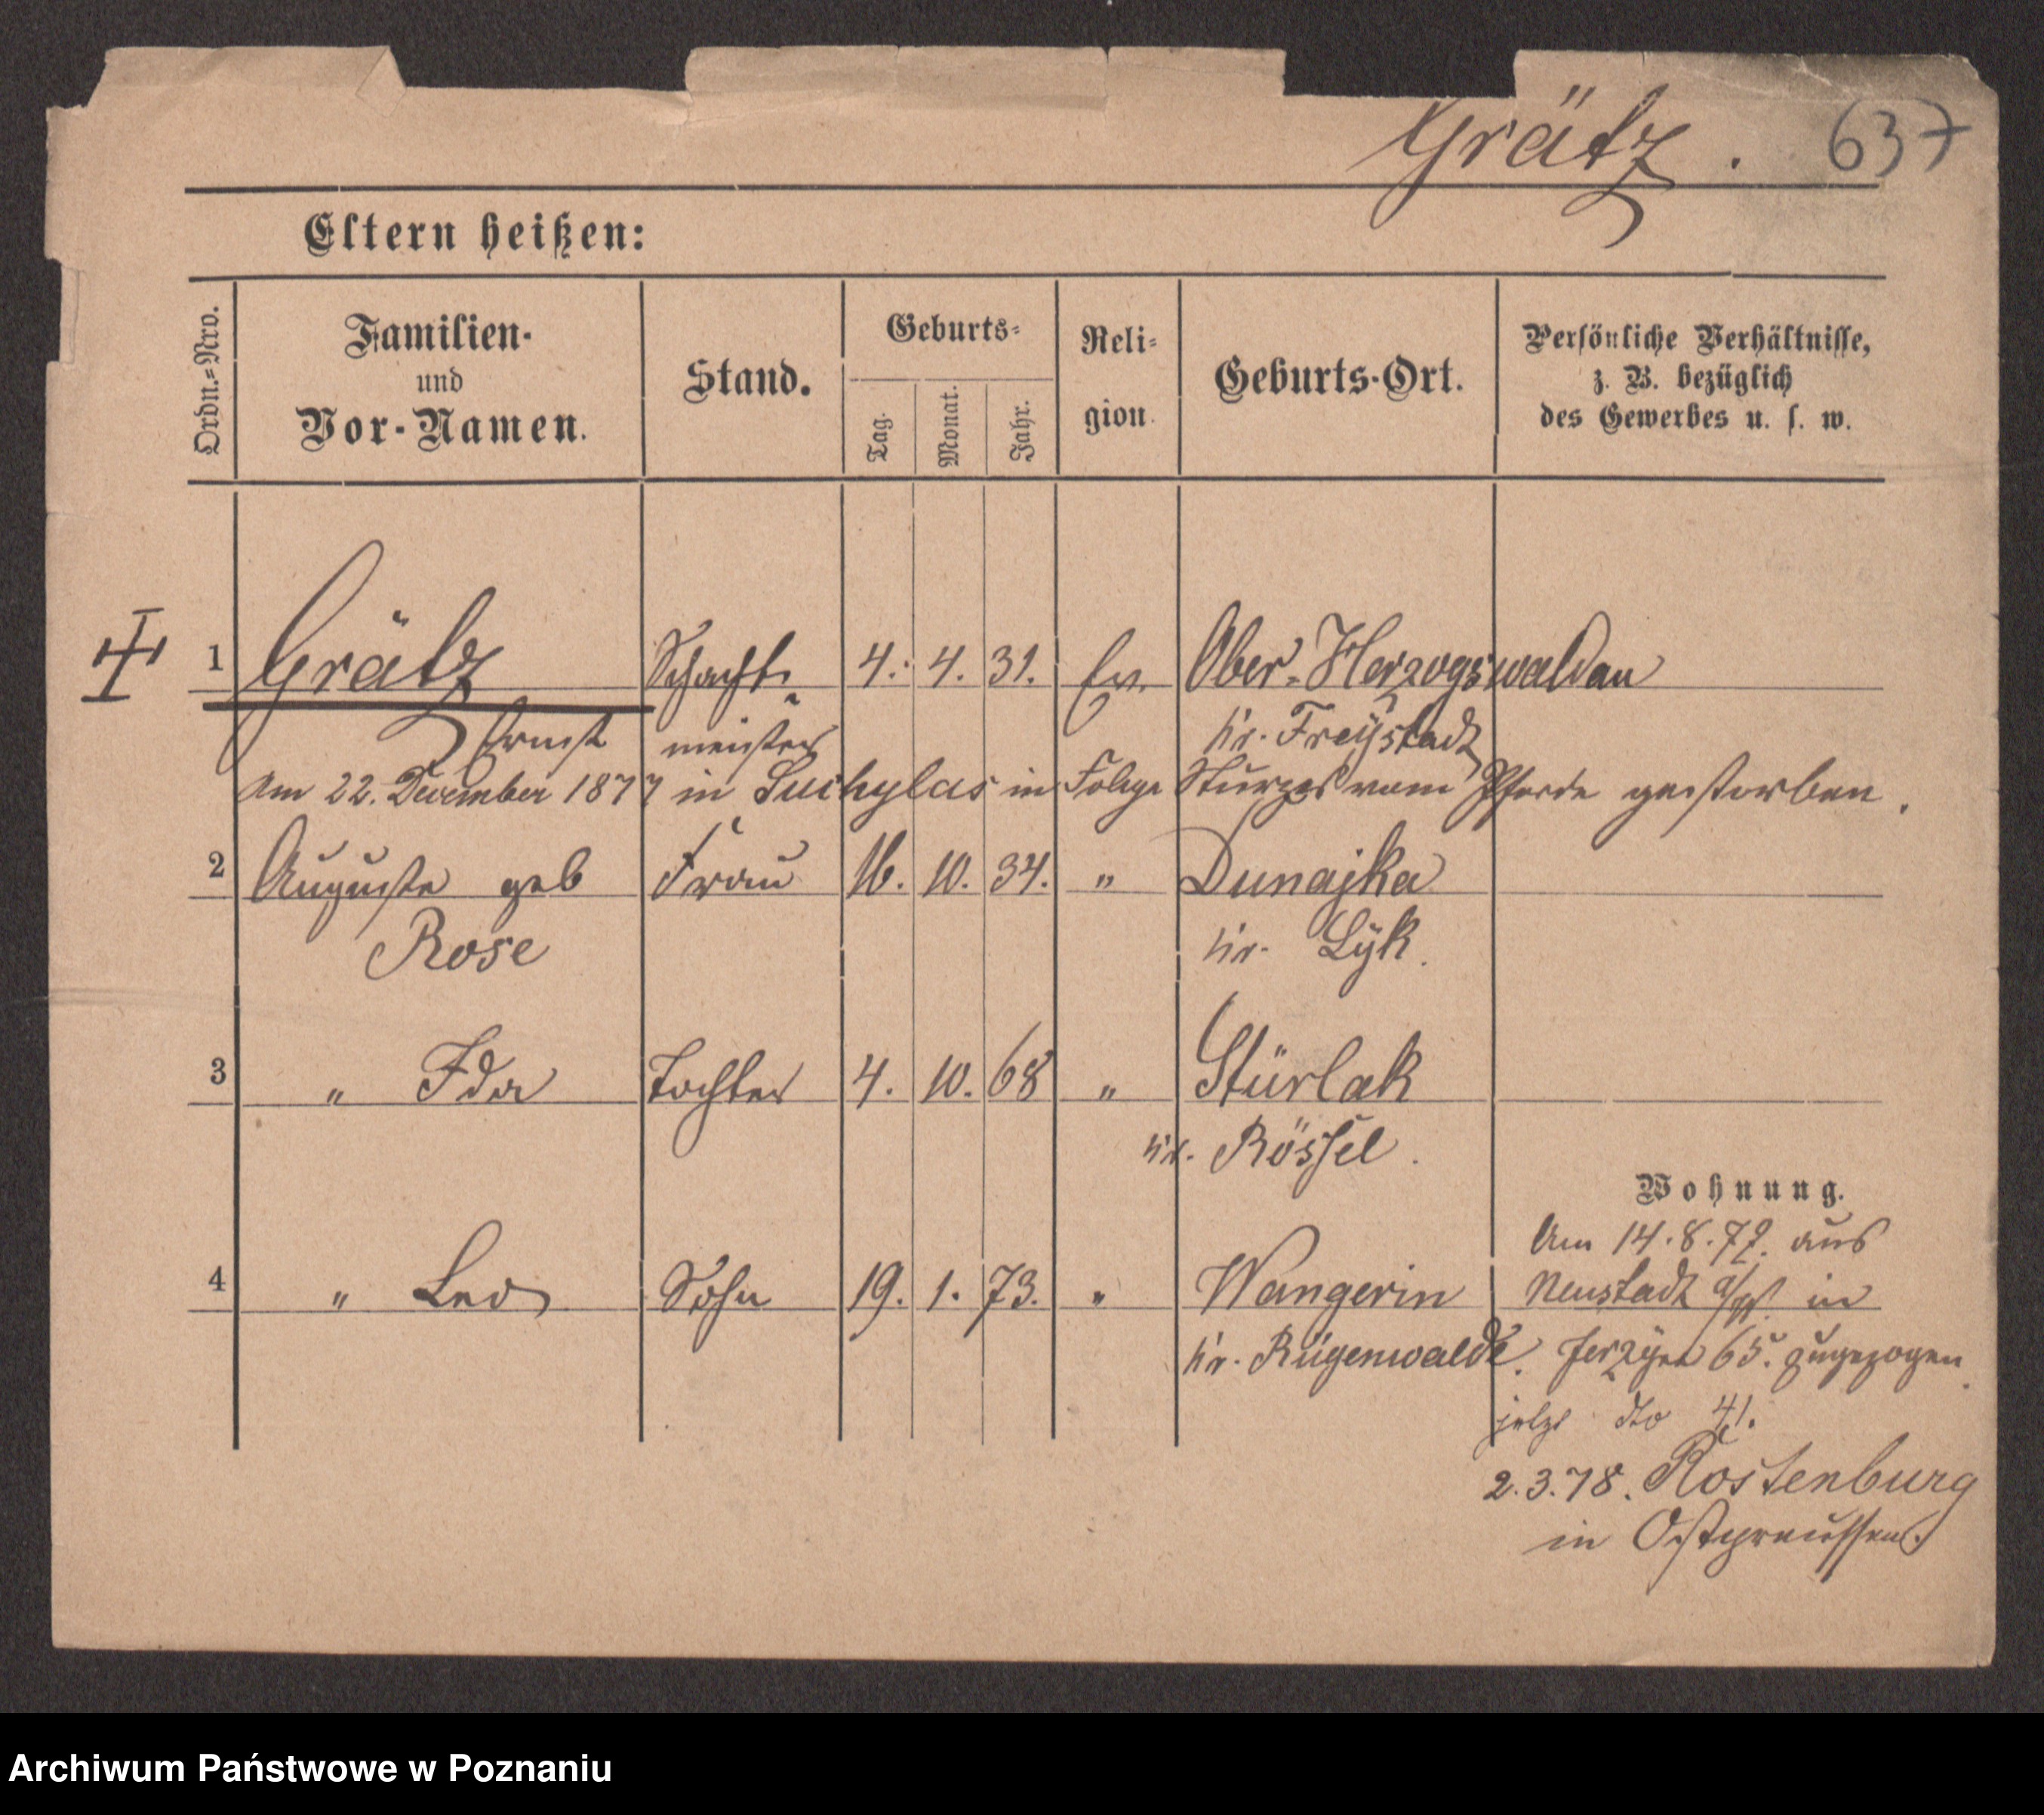 Grätz. 637
Eltern heißen:
Ordn.=Nro.
Familien-
und
Vor-Namen.
Stand.
Geburts-
Tag. Monat. Jahr.
Reli-
gion.
Geburts-Ort.
Persönliche Verhältnisse,
z. B. bezüglich
des Gewerbes u. s. w.
1 Grätz Schacht- 4. 4. 31. Ev. Ober-Herzogswaldau
Ernst meister Kr. Freystadt
Am 22. December 1877 in Suchylas in Folge Sturzes vom Pferde gestorben.
2 Auguste geb Frau 16. 10. 34. " Dunajka
Rose Kr. Lyk.
3 " Ida Tochter 4. 10. 68 " Stürlak
Kr. Rössel.
Wohnung.
Am 14.8.77. aus
4 " Leo Sohn 19. 1. 73. " Wangerin Neustadt a/W. in
Kr. Rügenwalde. Jerzyce 65. zugezogen.
jetzt dto 41.
2.3.78. Rostenburg
in Ostpreussen.
Archiwum Państwowe w Poznaniu